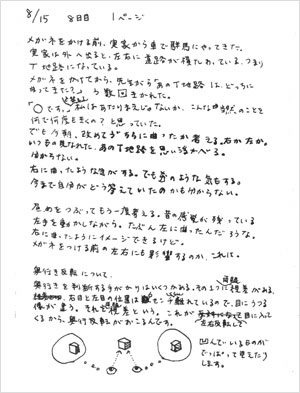 8/15 8日目 1ページ
メガネをかける前、実家から車で群馬にやってきた。
実家は外へ出ると、左右に道路が横たわっている、つまり
T地路になっている。
メガネをかけてから、先生から「あのT地路は、どっちに
曲ってきた?」と数回きかれた。
「〇です。」私はあたりまえじゃないか、こんな当然のことを
何で何度もきくの?と思っていた。
でも今朝、改めてどちらに曲ったか考える。右か左か。
いつもの見なれた、あのT地路を思い浮かべる。
分からない。
右に曲ったような気がする。でも左のような気もする。
今まで自分がどう答えていたのかも分からない。
目をつぶってもう一度考える。昔の感覚が残っている
左手を動かしながら。たぶん左に曲ったんだろうな。
右に曲ったようにイメージできるけど。
メガネをつける前の左右にも影響するのか、これは。
奥行き反転について。
奥行きを判断する手がかりはいくつかある。その1つに視差がある。
右目と左目の位置は ズレれているので、目にうつる
像が違う。それを視差という。これが
左右反転して
目に入って
くるから、奥行反転がおこるんです。
凹んでいる目のが
でっぱって見えたり
します。